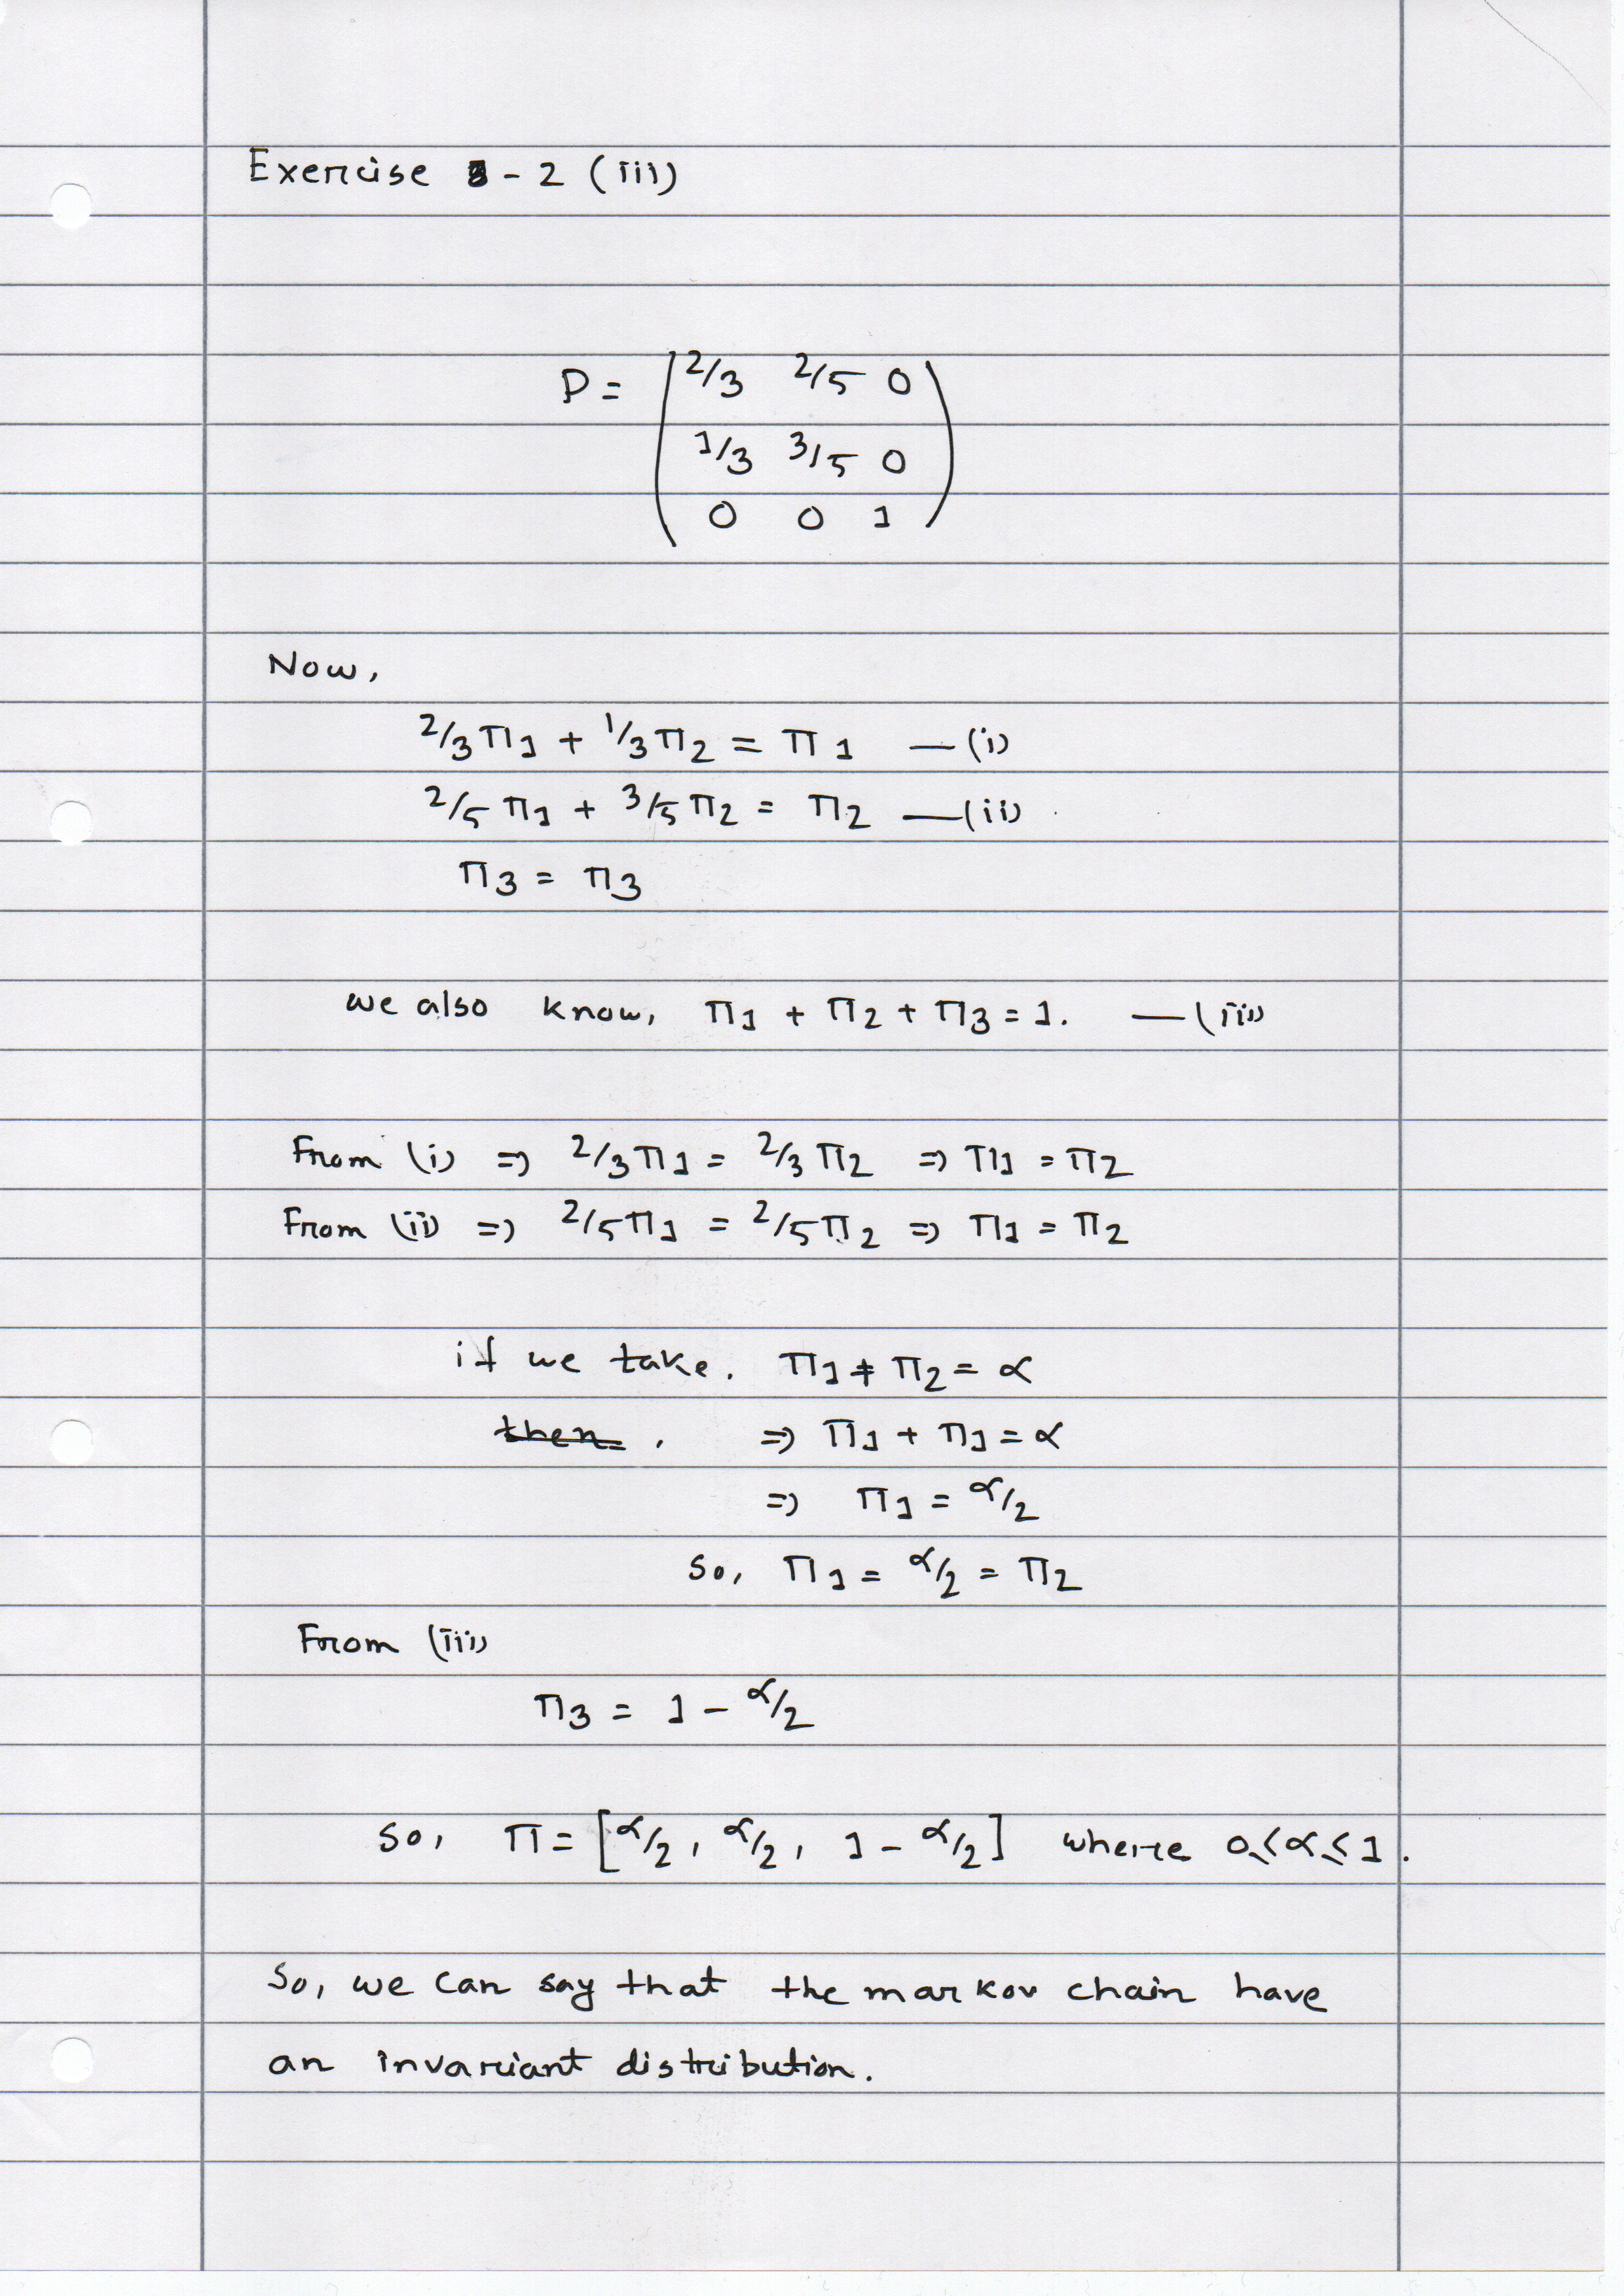 Exercise 3-2 (iii)
P = ( 2/3 2/5 0
1/3 3/5 0
0 0 1 )
Now,
2/3 π1 + 1/3 π2 = π1 — (i)
2/5 π1 + 3/5 π2 = π2 — (ii)
π3 = π3
we also know, π1 + π2 + π3 = 1. — (iii)
From (i) => 2/3 π1 = 2/3 π2 => π1 = π2
From (ii) => 2/5 π1 = 2/5 π2 => π1 = π2
if we take. π1 + π2 = α
then. , => π1 + π1 = α
=> π1 = α/2
So, π1 = α/2 = π2
From (iii)
π3 = 1 - α/2
so, π = [α/2, α/2, 1 - α/2] where 0 ≤ α ≤ 1.
So, we can say that the markov chain have
an invariant distribution.